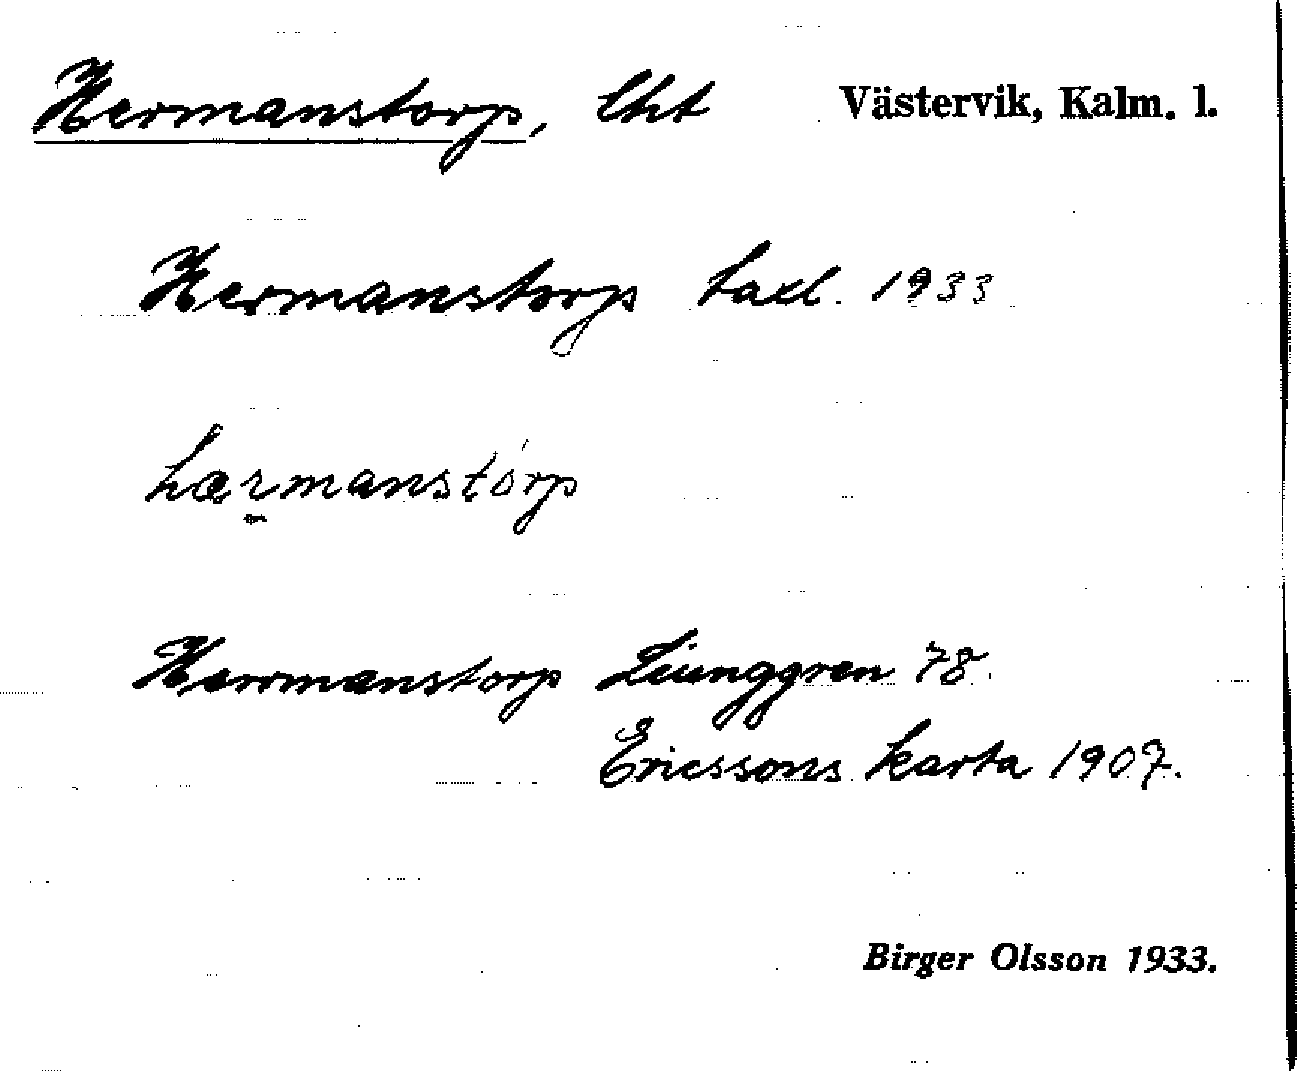 Hermanstorp, lht Västervik, Kalm. l.
Hermanstorp taxl. 1933
hærmanstórp
Herrmanstorp Ljunggren 78.
Ericssons karta 1907.
Birger Olsson 1933.